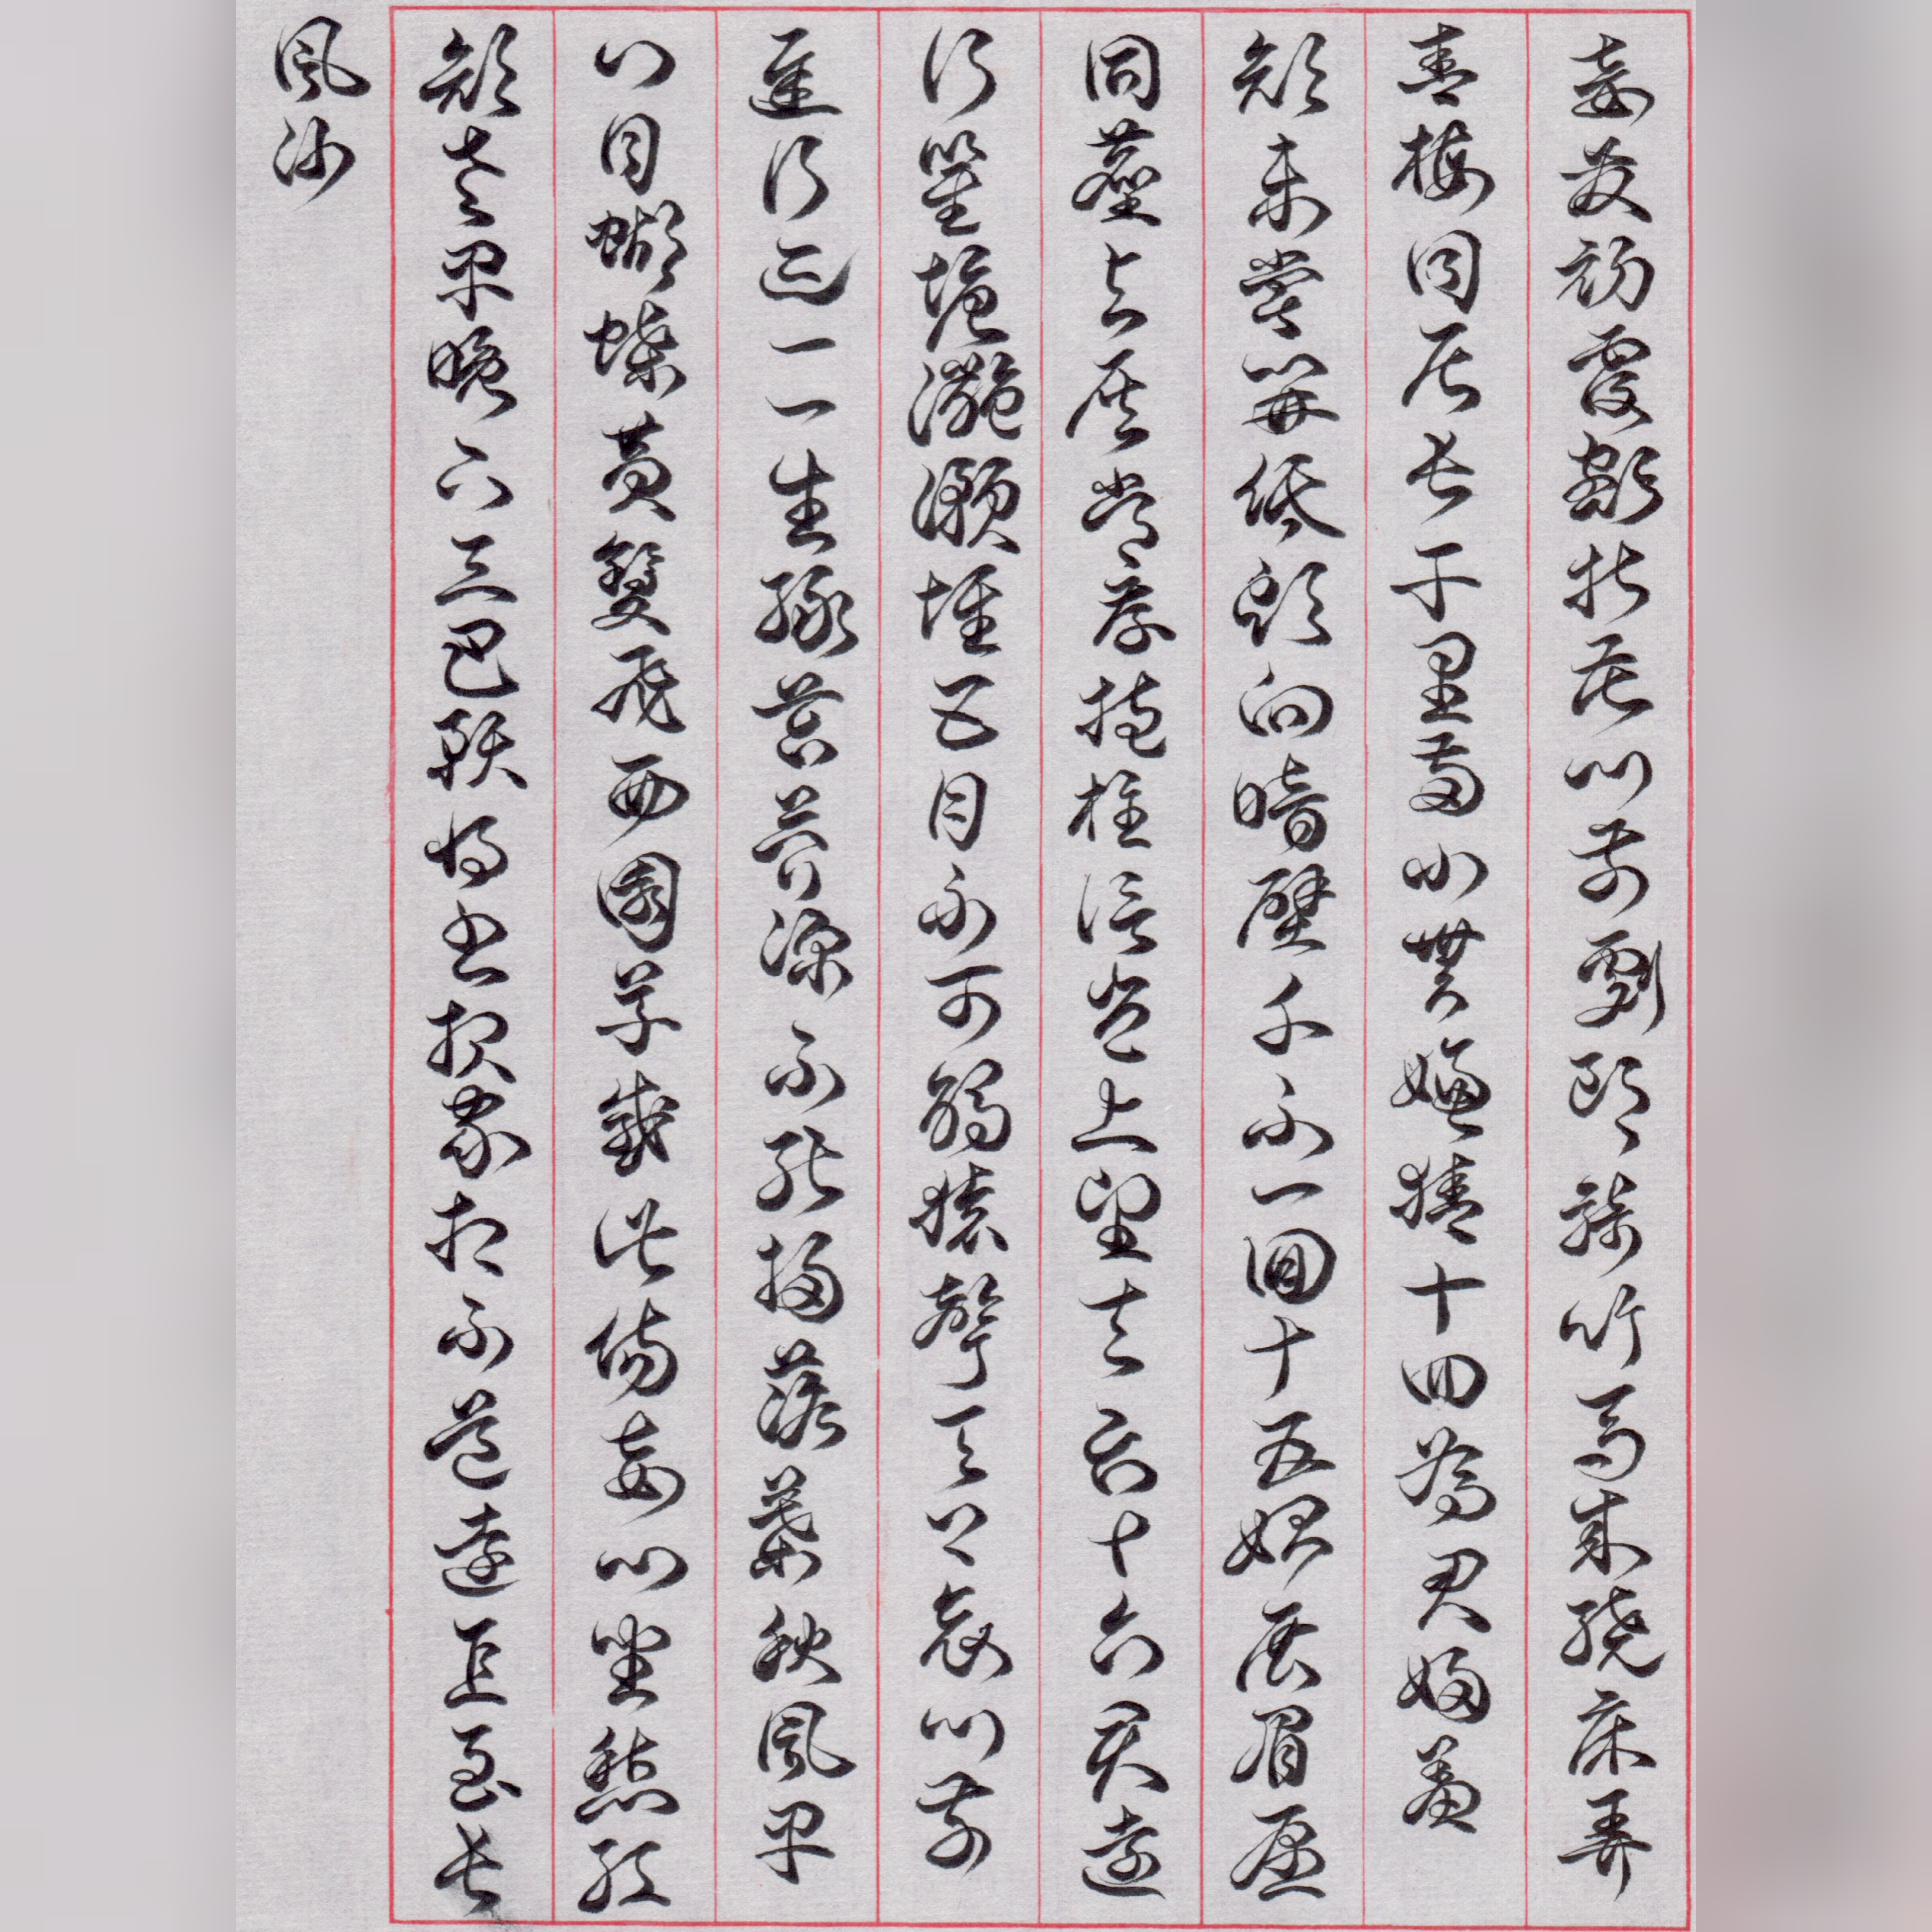 妾髮初覆額折花門前劇郎騎竹馬來繞床弄
青梅同居長干里兩小無嫌猜十四為君婦羞
顏未嘗開低頭向暗壁千不一回十五始展眉願
同塵與灰常存抱柱信豈上望夫台十六君遠
行瞿塘灩澦堆五月不可觸猿聲天上哀門前
遲行跡一一生綠苔苔深不能掃落葉秋風早
八月蝴蝶黃雙飛西園草感此傷妾心坐愁紅
顏老早晚下三巴預將書報家相不道遠直至長
風沙